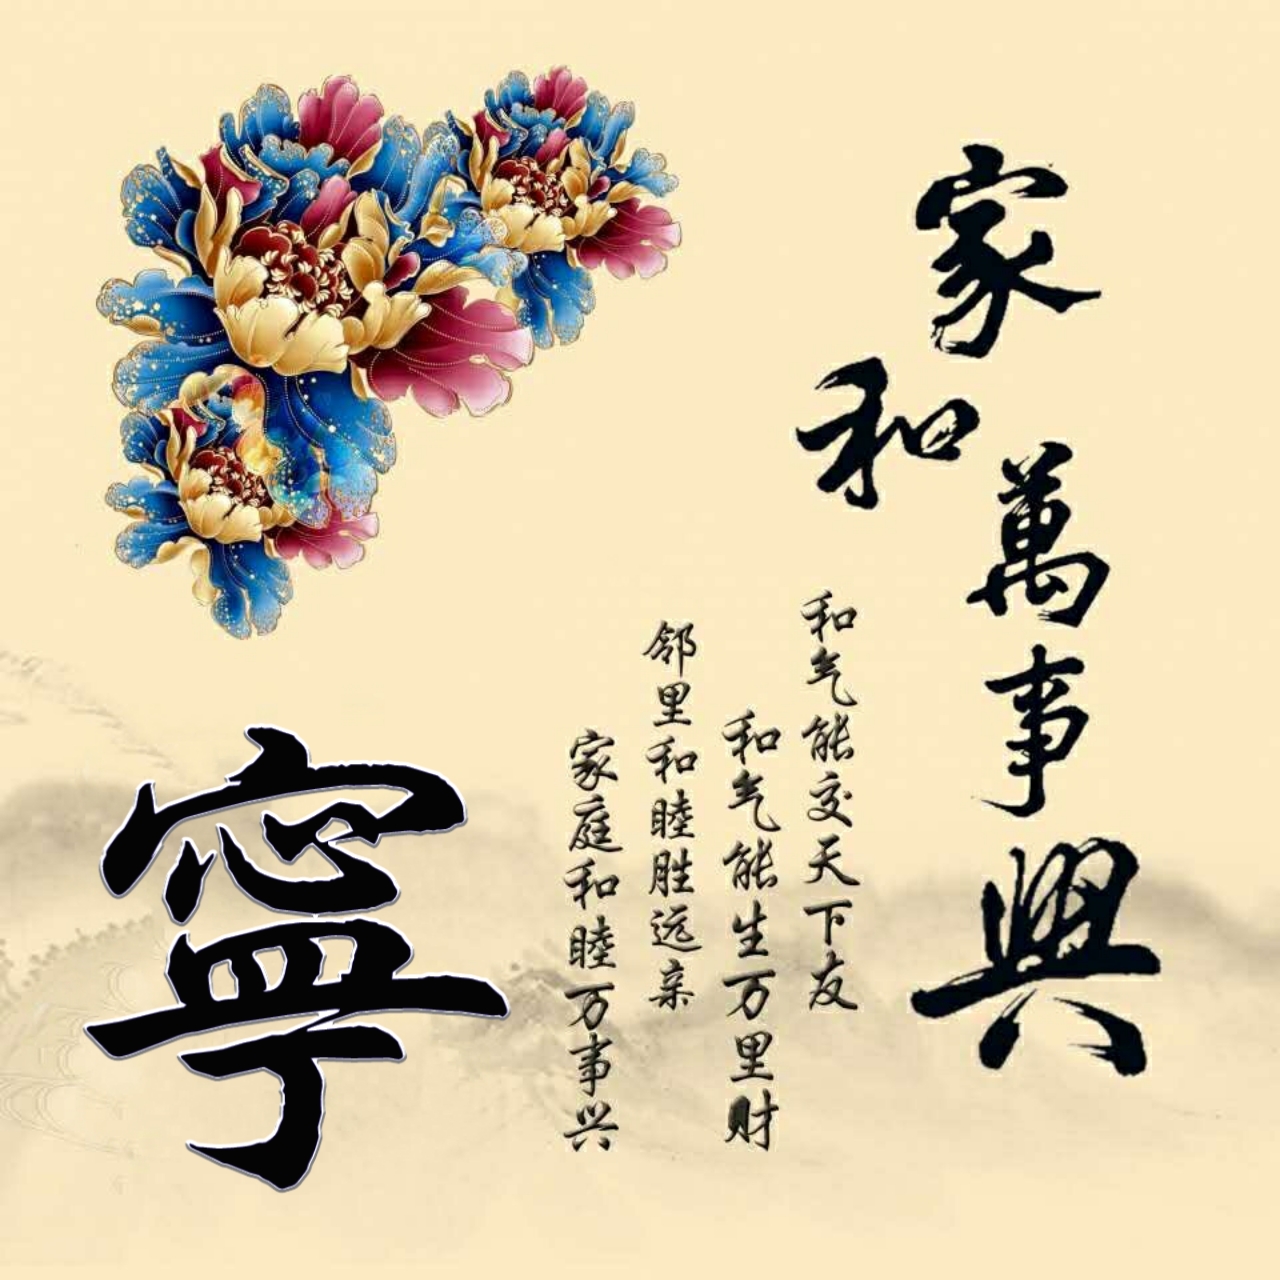 家和萬事興
和气能交天下友
和气能生万里财
邻里和睦胜远亲
家庭和睦万事兴
寧